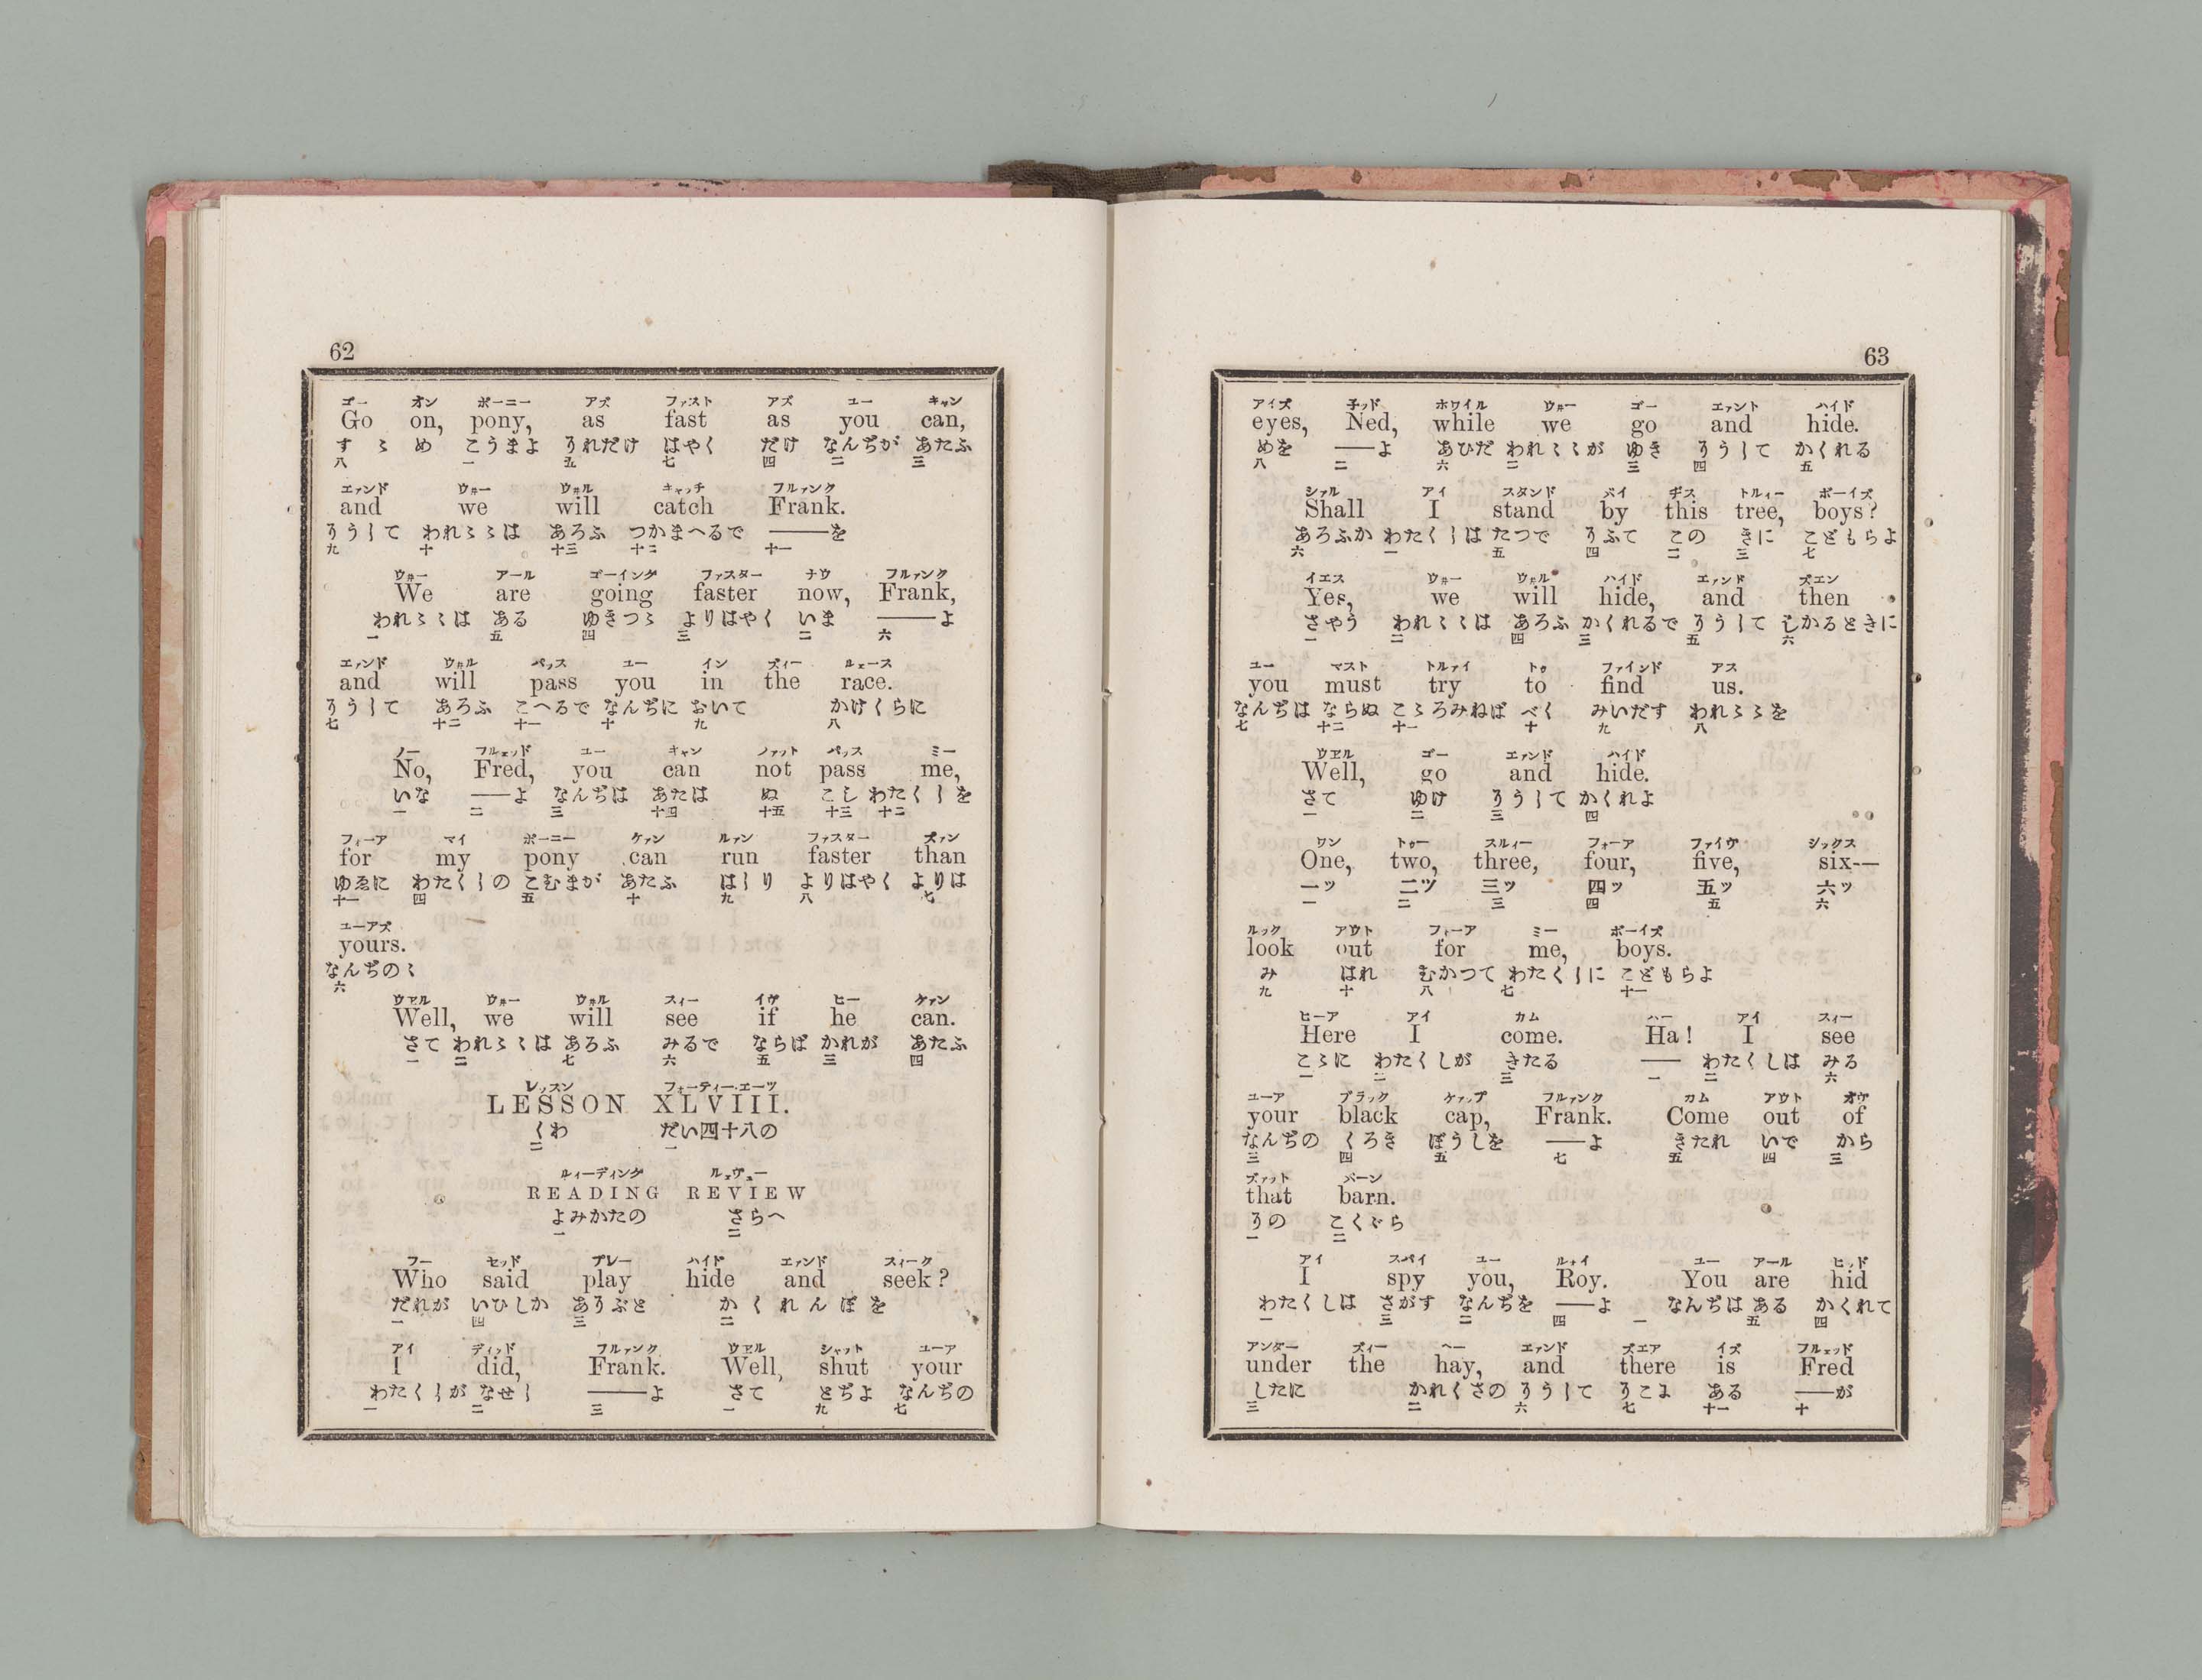 62
ゴー オン ポーニー アズ ファスト アズ ユー キャン
Go on, pony, as fast as you can,
すゝめ こうまよ それだけ はやく だけ なんぢが あたふ
八 一 五 七 四 二 三
エァンド ウ井ー ウ井ル キャッチ フルァンク
and we will catch Frank.
そうして われゝゝは あろふ つかまへるで ——を
九 十 十三 十二 十一
ウ井ー アール ゴーイング ファスター ナウ フルァンク
We are going faster now, Frank,
われゝゝは ある ゆきつゝ よりはやく いま ——よ
一 五 四 三 二 六
エァンド ウ井ル パッス ユー イン ズィー ルェース
and will pass you in the race.
そうして あろふ こへるで なんぢに おいて かけくらに
七 十二 十一 十 九 八
ノー フルェッド ユー キャン ノァット パッス ミー
No, Fred, you can not pass me,
いな ——よ なんぢは あたは ぬ こし わたくしを
一 二 三 十四 十五 十三 十二
フォーア マイ ポーニー ケァン ルァン ファスター ズァン
for my pony can run faster than
ゆゑに わたくしの こむまが あたふ はしり よりはやく よりは
十一 四 五 十 九 八 七
ユーアズ
yours.
なんぢのゝ
六
ウエル ウ井ー ウ井ル スィー イヴ ヒー ケァン
Well, we will see if he can.
さて われゝゝは あろふ みるで ならば かれが あたふ
一 二 七 六 五 三 四
レッスン フォーティー・エーツ
LESSON XLVIII.
くわ だい四十八の
二 一
ルィーディング ルェヴュー
READING REVIEW
よみかたの さらへ
一 二
フー セッド プレー ハイド エァンド スィーク
Who said play hide and seek?
だれが いひしか あそぶと かくれんぼを
一 四 三 二
アイ ディッド フルァンク ウエル シャット ユーア
I did, Frank. Well, shut your
わたくしが なせし ——よ さて とぢよ なんぢの
一 二 三 一 九 七
63
アイズ 子ッド ホワイル ウ井ー ゴー エァント ハイド
eyes, Ned, while we go and hide.
めを ——よ あひだ われゝゝが ゆき そうして かくれる
八 二 六 二 三 四 五
シァル アイ スタンド バイ ヂス トルィー ボーイズ
Shall I stand by this tree, boys?
あろふか わたくしは たつで そふて この きに こどもらよ
六 一 五 四 二 三 七
イエス ウ井ー ウ井ル ハイド エァンド ズエン
Yes, we will hide, and then
さやう われゝゝは あろふ かくれるで そうして しかるときに
一 二 四 三 五 六
ユー マスト トルァイ トゥ ファインド アス
you must try to find us.
なんぢは ならぬ こゝろみねば べく みいだす われゝゝを
七 十二 十一 十 九 八
ウエル ゴー エァンド ハイド
Well, go and hide.
さて ゆけ そうして かくれよ
一 二 三 四
ワン トゥー スルィー フォーア ファイヴ シックス
One, two, three, four, five, six—
一ッ 二ツ 三ッ 四ッ 五ッ 六ッ
一 二 三 四 五 六
ルック アウト フォーア ミー ボーイズ
look out for me, boys.
み はれ むかつて わたくしに こどもらよ
九 十 八 七 十一
ヒーア アイ カム ハー アイ スィー
Here I come. Ha! I see
こゝに わたくしが きたる —— わたくしは みる
一 二 三 一 二 六
ユーア ブラック ケァップ フルァンク カム アウト オヴ
your black cap, Frank. Come out of
なんぢの くろき ぼうしを ——よ きたれ いで から
三 四 五 七 五 四 三
ズァット バーン
that barn.
その こくぐら
一 二
アイ スパイ ユー ルォイ ユー アール ヒッド
I spy you, Roy. You are hid
わたくしは さがす なんぢを ——よ なんぢは ある かくれて
一 三 二 四 一 五 四
アンダー ズィー ヘー エァンド ズエア イズ フルェッド
under the hay, and there is Fred
したに かれくさの そうして そこに ある ——が
三 二 六 七 十一 十